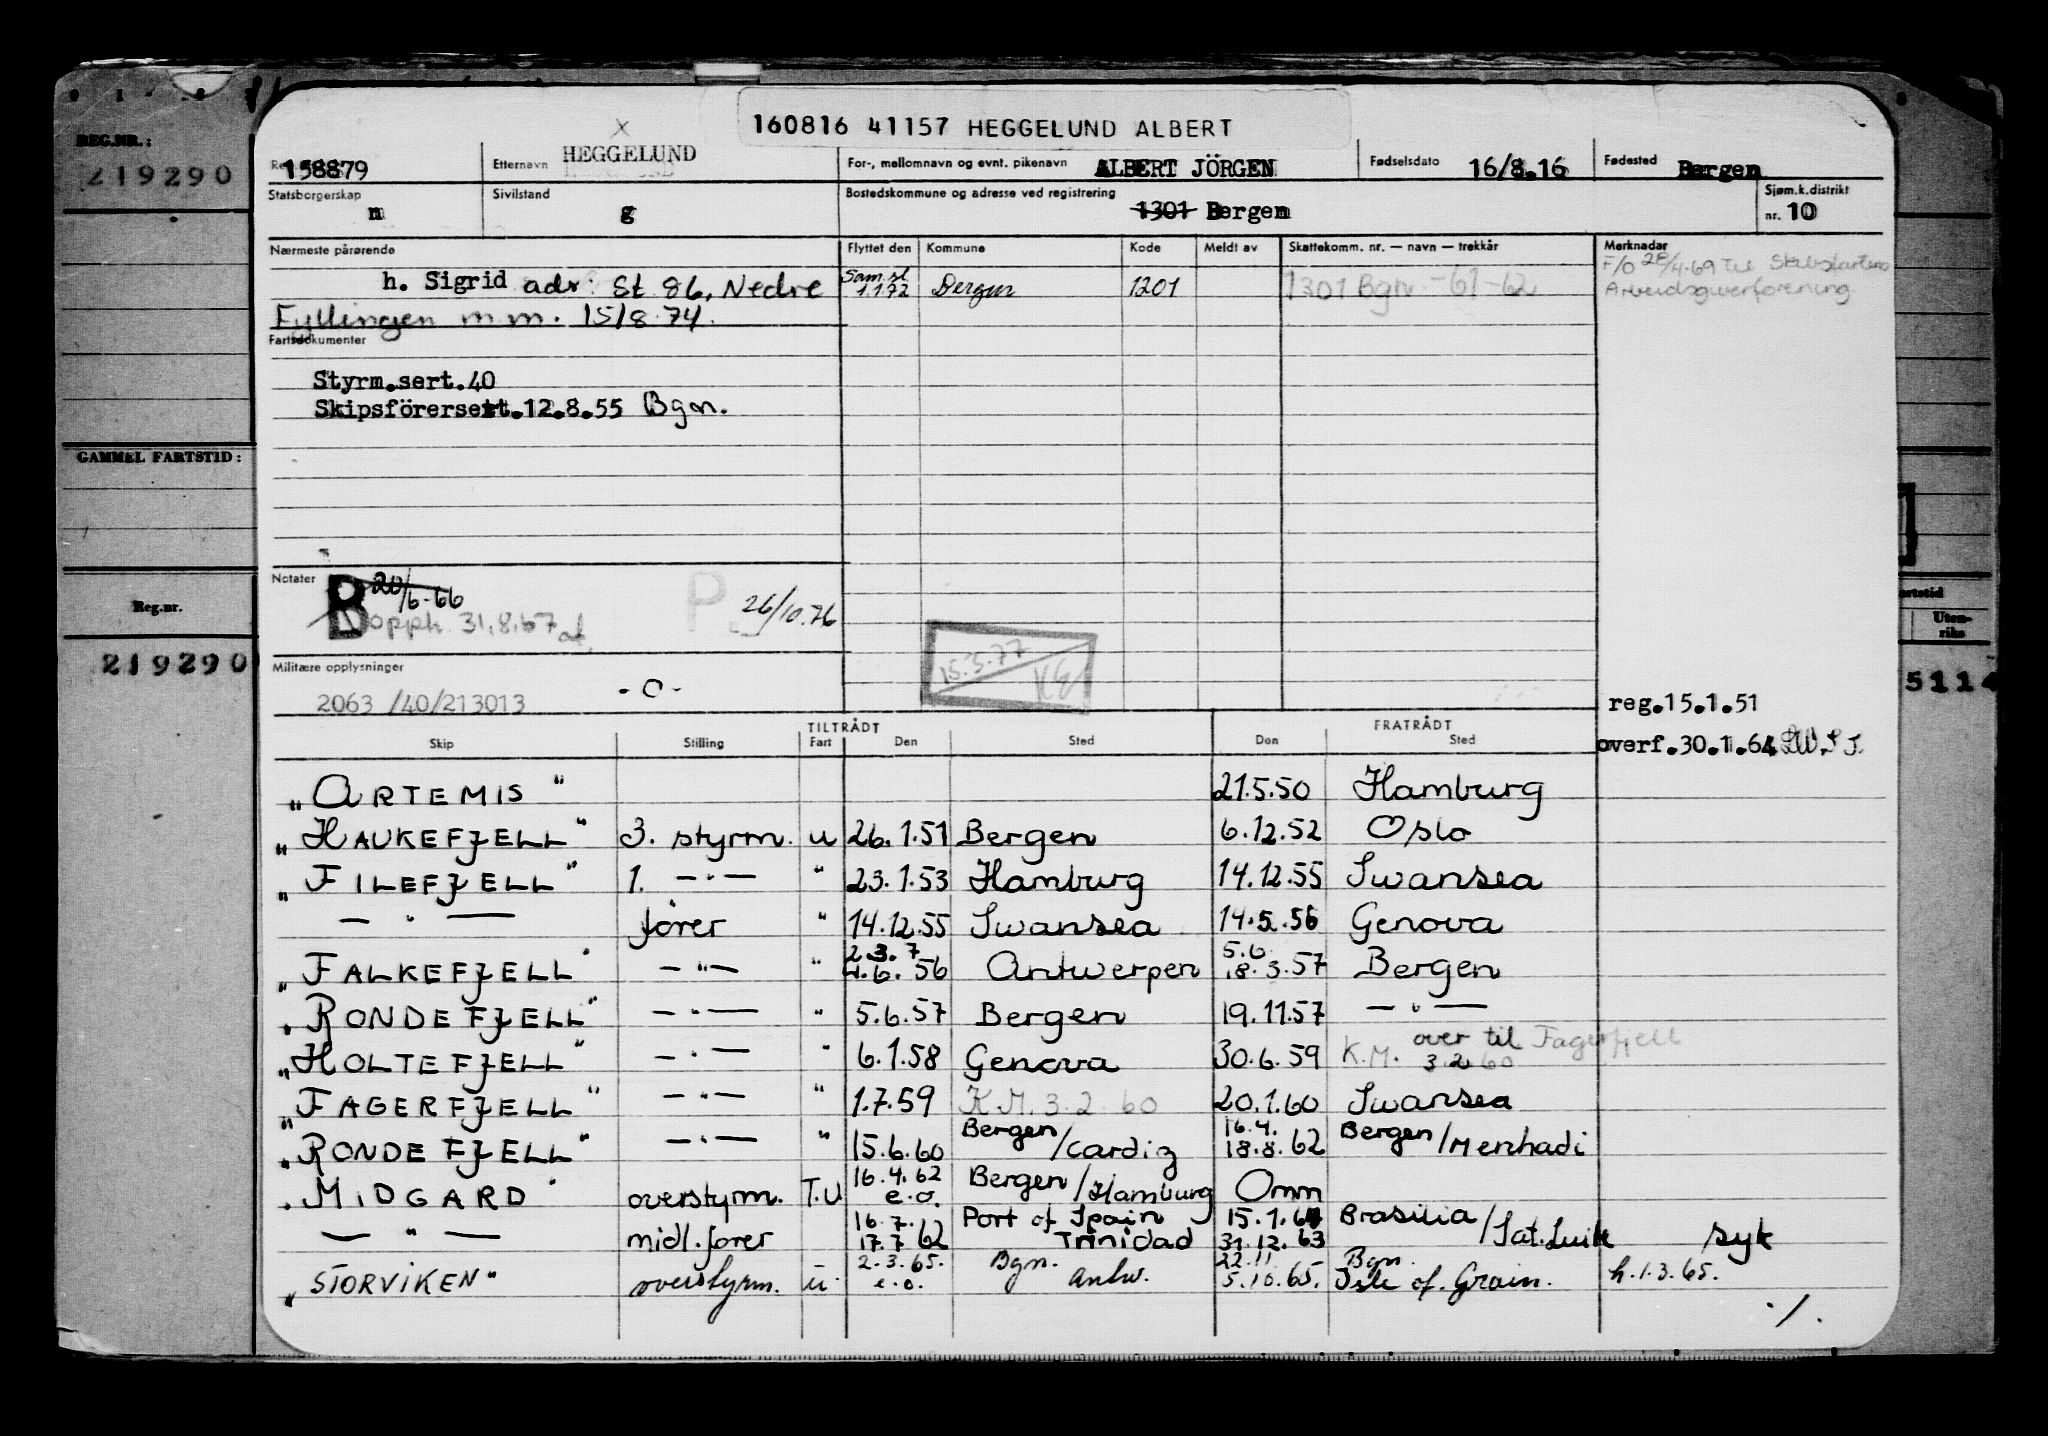 REG.NR.:
219290
GAMMEL FARTSTID:
Reg.nr.
219290
160816 41157 HEGGELUND ALBERT
x
158879
Etternavn HEGGELUND
For-, mellomnavn og evnt. pikenavn ALBERT JÖRGEN
Fødselsdato 16/8.16
Fødested Bergen
Statsborgerskap n
Sivilstand g
Bostedskommune og adresse ved registrering 1301 Bergen
Sjøm.k.distrikt nr. 10
Nærmeste pårørende
Flyttet den Kommune Kode Meldt av Skattekomm. nr. — navn — trekkår Merknader
h. Sigrid adr: St 86, Nedre
Fyllingen m.m. 15/8.74.
Sam.sl 1.1.72 Bergen 1201
1301 Bgn -61-62
F/O 28/4-69 til
Arbeidsgiverforening
Fartsdokumenter
Styrm.sert.40
Skipsförersert.12.8.55 Bgn.
Notater
B 20/6-66
opph. 31.8.67
P. 26/10.76
15.3.77
Militære opplysninger
2063 /40/213013 -o-
reg.15.1.51
overf.30.1.64
TILTRÅDT FRATRÅDT
Skip Stilling Fart Den Sted Den Sted
"ARTEMIS" 21.5.50 Hamburg
"HAUKEFJELL" 3. styrm. u 26.1.51 Bergen 6.12.52 Oslo
"FILEFJELL" 1. —"— " 23.1.53 Hamburg 14.12.55 Swansea
—"— fører " 14.12.55 Swansea 14.5.56 Genova
"FALKEFJELL" —"— " 2.3.7 4.6.56 Antwerpen 5.6. 18.3.57 Bergen
"RONDEFJELL" —"— " 5.6.57 Bergen 19.11.57 —"—
"HOLTEFJELL" —"— " 6.1.58 Genova 30.6.59 K.M. over til Fagerfjell 3.2.60
"FAGERFJELL" —"— " 1.7.59 K.M. 3.2.60 20.1.60 Swansea
"RONDEFJELL" —"— " 15.6.60 Bergen/Cardig 16.4. 18.8.62 Bergen/Menhadi
"MIDGARD" overstyrm. T.U 16.4.62 e.o. Bergen/Hamburg Omm
—"— midl.fører 16.7. 17.7 62 Port of Spain Trinidad 15.1.64 31.12.63 Brasilia/ syk
"STORVIKEN" overstyrm. u 2.3.65. e.o. Bgn. Antw. 22.11 5.10.65. Bgn. Isle of. Grain. h.1.3.65.
./.
Uten-
riks
5114